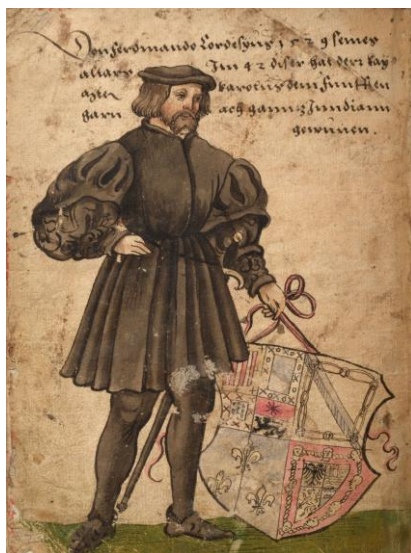 Don ferdinando Cordesyus 1529 seines
altars Im 42 diser hat derr kay
karolus dem funfften
ach gannz Jnndiann
gewunnen.